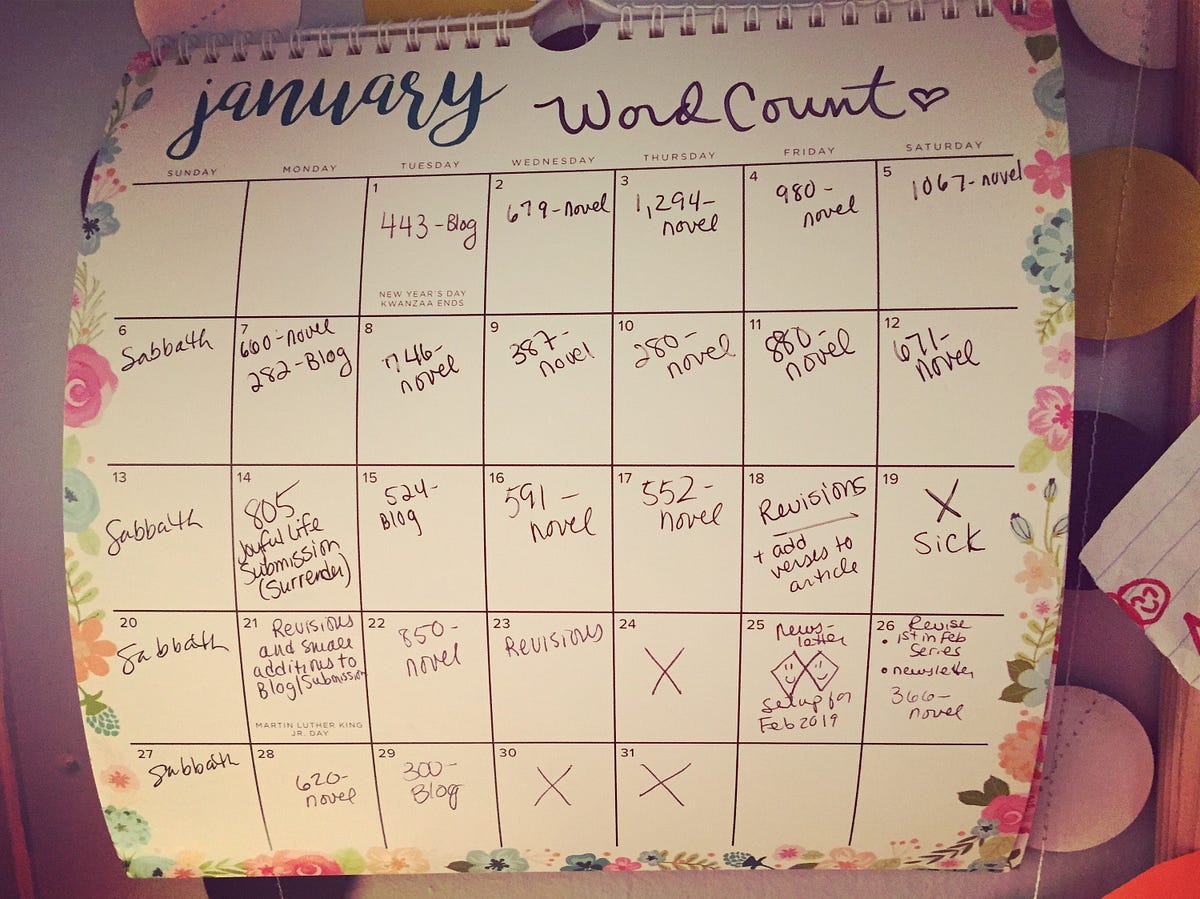 january Word Count
SUNDAY MONDAY TUESDAY WEDNESDAY THURSDAY FRIDAY SATURDAY
1
443-Blog
NEW YEAR'S DAY
KWANZAA ENDS
2
679-novel
3
1,294-
novel
4
980-
novel
5
1067-novel
6
Sabbath
7
660-novel
282-Blog
8
746-
novel
9
387-
novel
10
280-
novel
11
880-
novel
12
671-
novel
13
Sabbath
14
805
Joyful Life
Submission
(Surrender)
15
524-
Blog
16
591-
novel
17
552-
novel
18
Revisions
+ add
verses to
article
19
X
Sick
20
Sabbath
21
Revisions
and small
additions to
Blog/Submission
MARTIN LUTHER KING
JR. DAY
22
850-
novel
23
Revisions
24
X
25
news-
letter
setup for
Feb 2019
26
Revise
• 1st in Feb
Series
• newsletter
366-
novel
27
Sabbath
28
620-
novel
29
300-
Blog
30
X
31
X